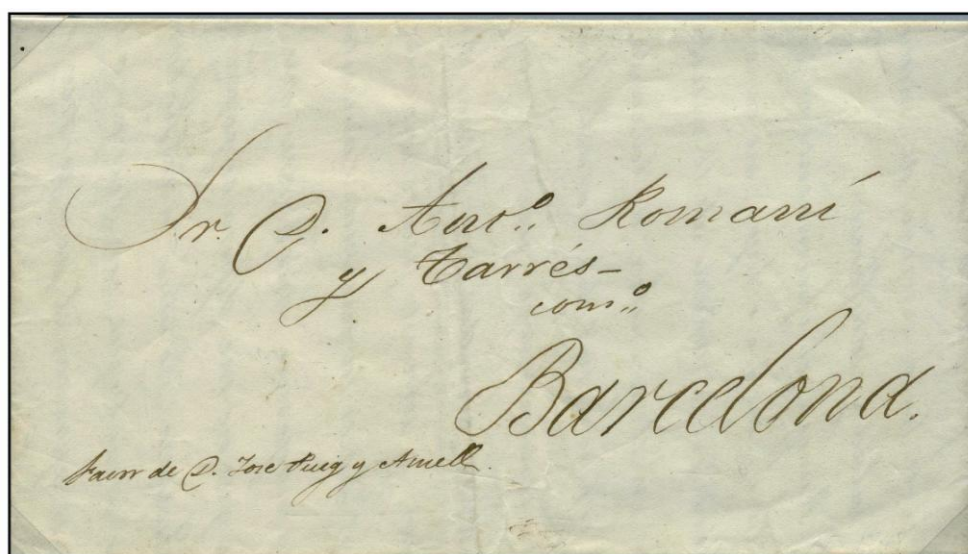 Sr. D. Anto. Romaní
y Tarrés-
como.
Barcelona.
Favor de D. Jose Puig y Amell.